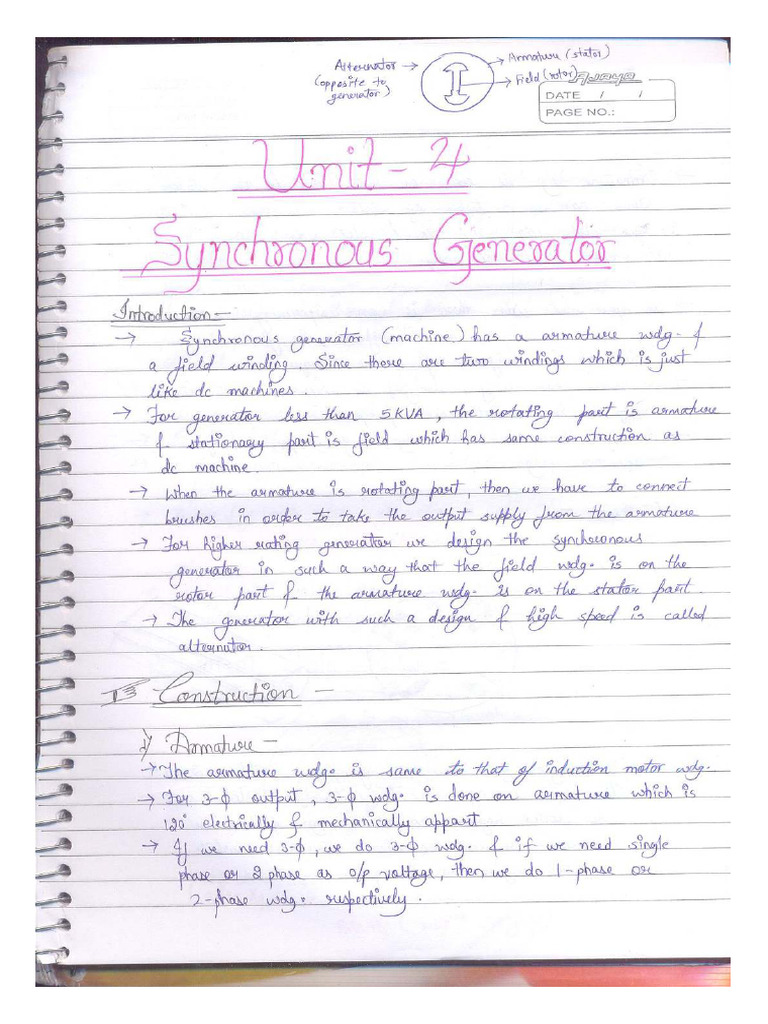 Alternator → → Armature (stator)
(opposite to → Field (rotor)
generator)
Ajaya
DATE / /
PAGE NO.:
Unit - 4
Synchronous Generator
Introduction -
→ Synchronous generator (machine) has a armature wdg. &
a field winding. Since there are two windings which is just
like dc machines.
→ For generator less than 5KVA, the rotating part is armature
& stationary part is field which has same construction as
dc machine.
→ When the armature is rotating part, then we have to connect
brushes in order to take the output supply from the armature
→ For higher rating generator we design the synchronous
generator in such a way that the field wdg. is on the
rotor part & the armature wdg. is on the stator part
→ The generator with such a design & high speed is called
alternator.
Construction -
i) Armature -
→ The armature wdg. is same to that of induction motor wdg.
→ For 3-ϕ output, 3-ϕ wdg. is done on armature which is
120° electrically & mechanically appart
→ If we need 3-ϕ, we do 3-ϕ wdg. & if we need single
phase or 2 phase as o/p voltage, then we do 1-phase or
2-phase wdg. respectively.